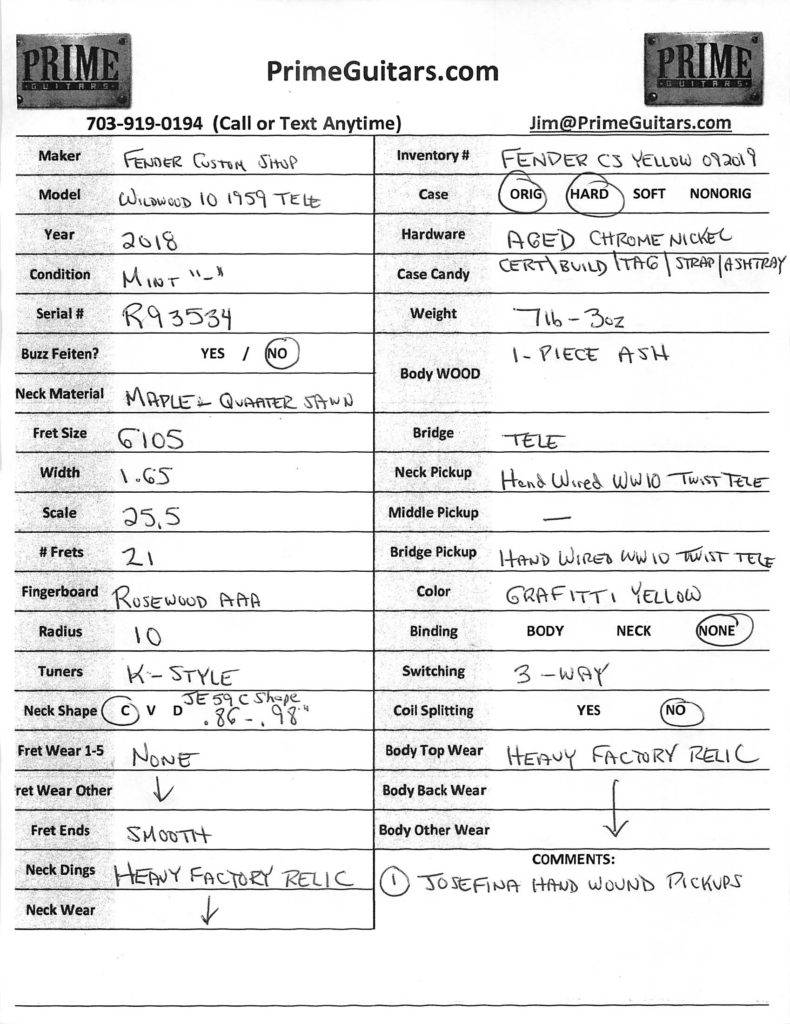 PRIME
GUITARS
PrimeGuitars.com
PRIME
GUITARS
703-919-0194 (Call or Text Anytime)
Jim@PrimeGuitars.com
Maker FENDER CUSTOM SHOP
Inventory # FENDER CS YELLOW 092019
Model WILDWOOD 10 1959 TELE
Case ORIG HARD SOFT NONORIG
Year 2018
Hardware AGED CHROME NICKEL
Condition MINT "-"
Case Candy CERT\BUILD|TAG|STRAP|ASHTRAY
Serial # R93534
Weight 7lb - 3oz
Buzz Feiten? YES / NO
Body WOOD 1-PIECE ASH
Neck Material MAPLE - QUARTER SAWN
Fret Size 6105
Bridge TELE
Width 1.65
Neck Pickup Hand Wired WW10 TWIST TELE
Scale 25.5
Middle Pickup —
# Frets 21
Bridge Pickup HAND WIRED WW10 TWIST TELE
Fingerboard ROSEWOOD AAA
Color GRAFITTI YELLOW
Radius 10
Binding BODY NECK NONE
Tuners K-STYLE
Switching 3-WAY
Neck Shape C V D JE 59 C Shape
.86 - .98"
Coil Splitting YES NO
Fret Wear 1-5 NONE
Body Top Wear HEAVY FACTORY RELIC
ret Wear Other ↓
Body Back Wear ↓
Fret Ends SMOOTH
Body Other Wear
Neck Dings HEAVY FACTORY RELIC
Neck Wear ↓
COMMENTS:
① JOSEFINA HAND WOUND PICKUPS